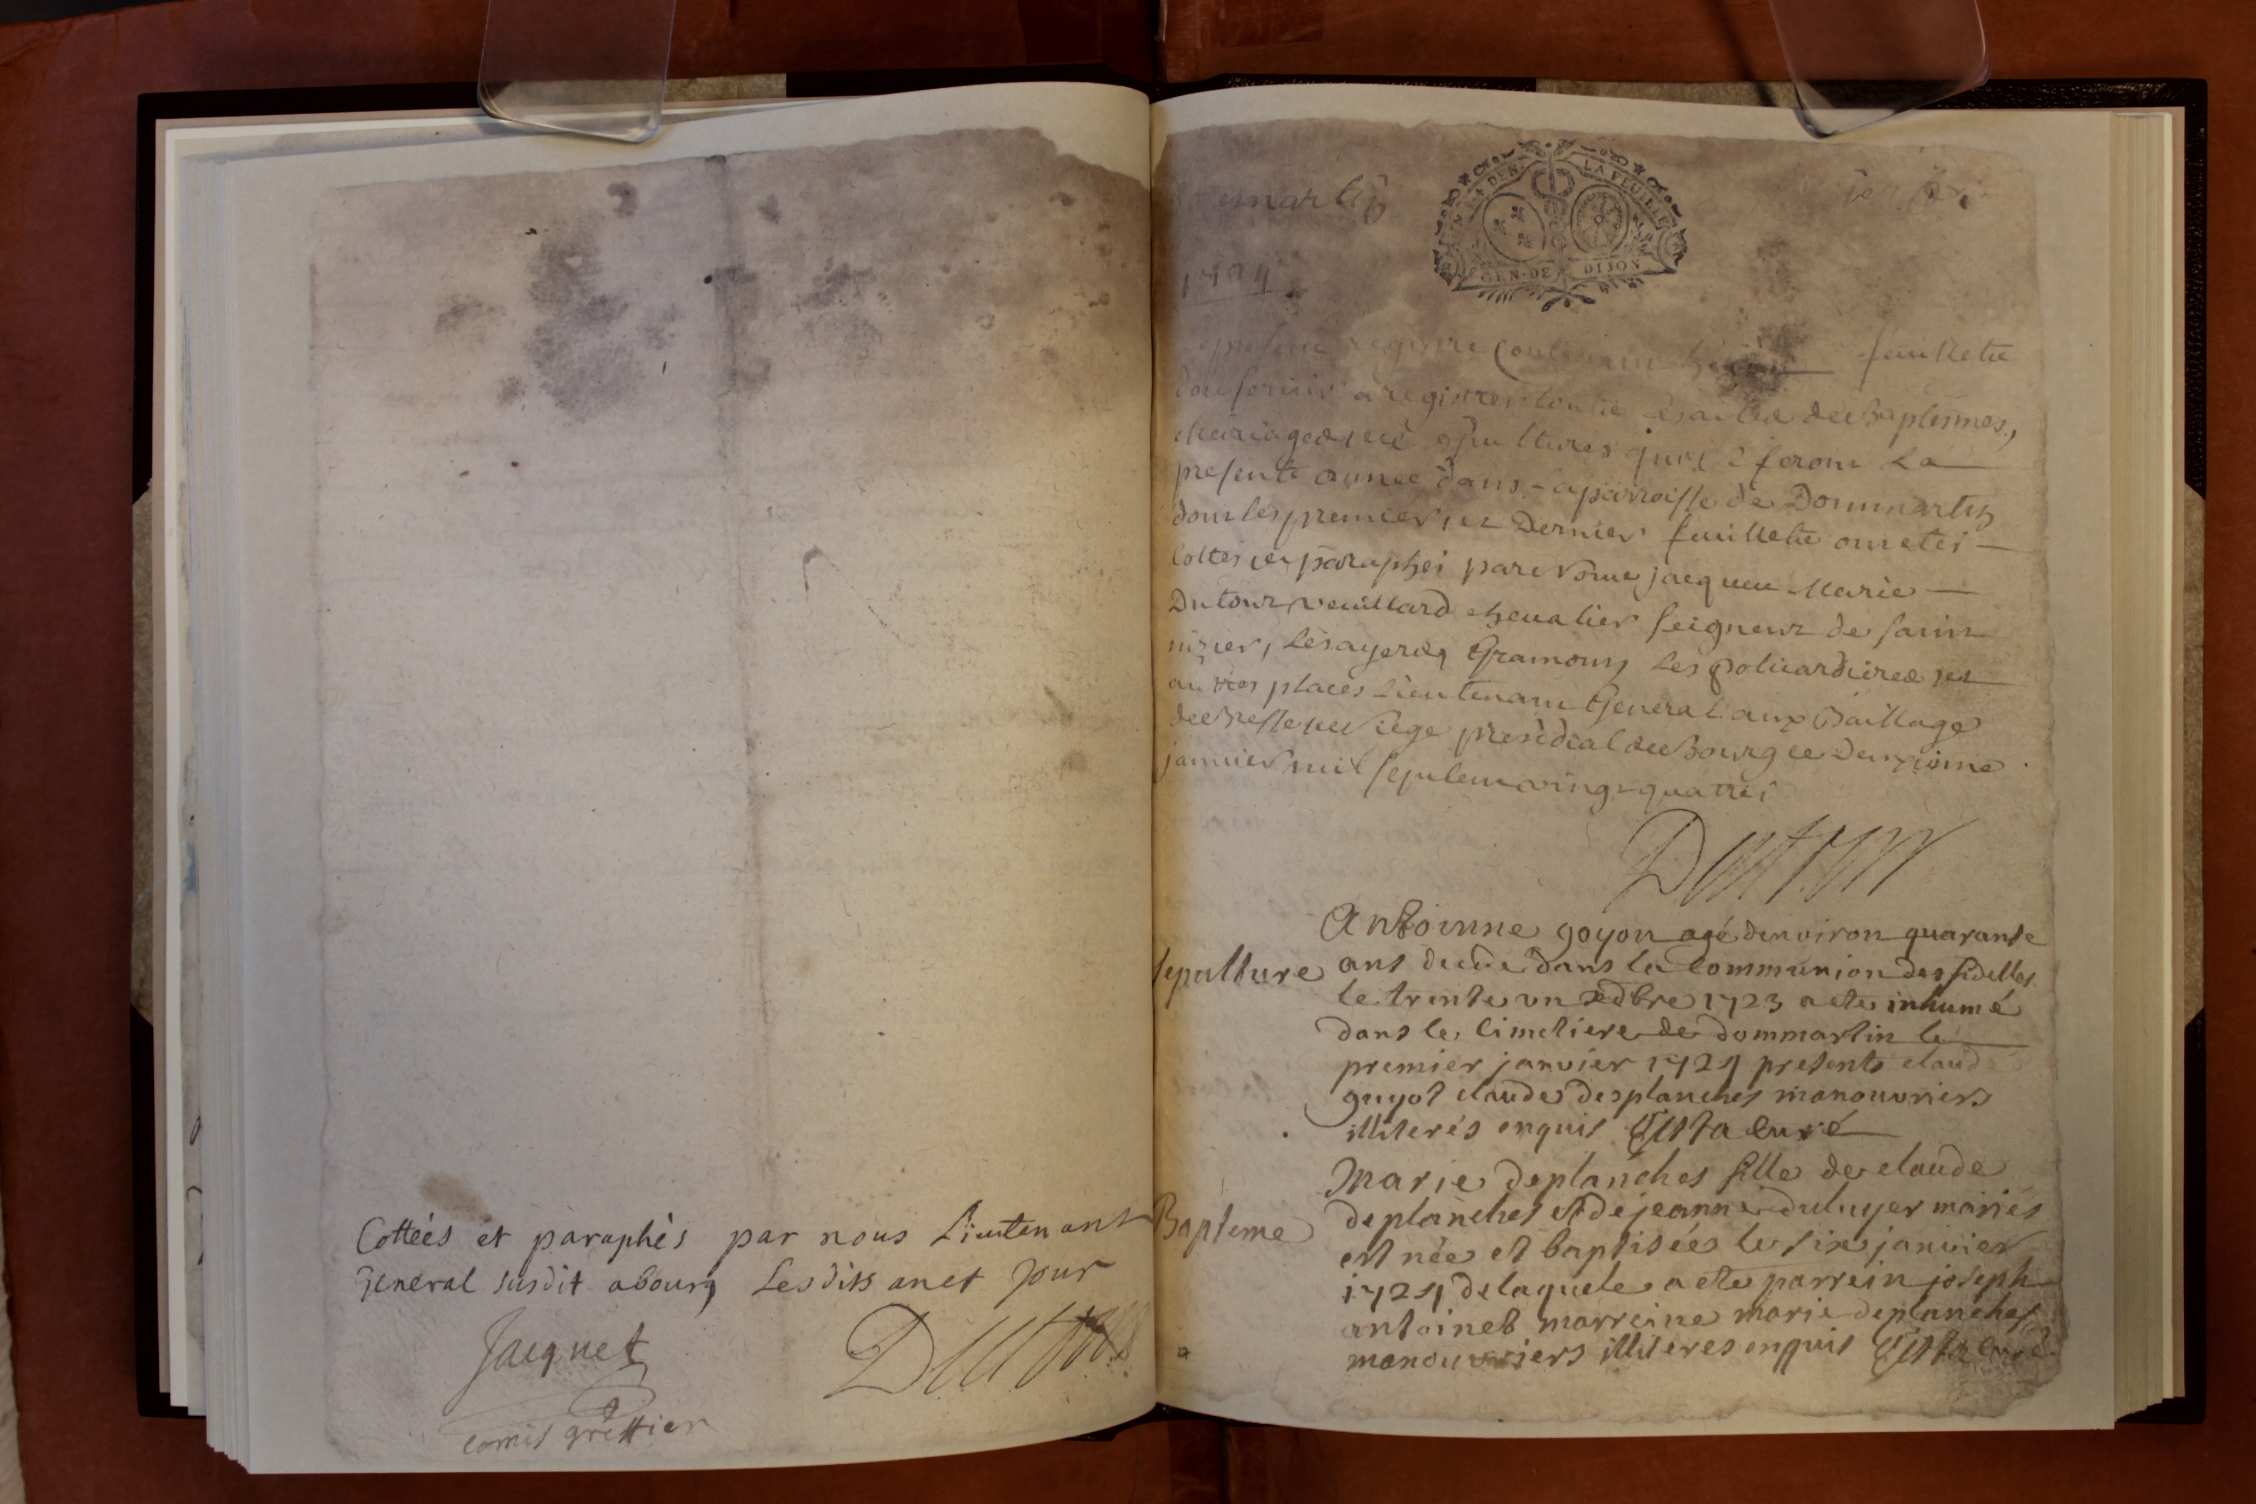 Cottées et paraphés par nous Lieutenant
General susdit a bourg Lesdits an et Jour
Jacquet
Dutour
comis greffier
GEN. DE DIJON
LA FEUILLE
1724
present registre contenant feuillets
pour servir a registrer toutte les actes de Baptesmes,
Mariages et sepultures qui se feront La
presente année dans la parroisse de Dommartin
dont les premier et Dernier feuillets ont etés
Cottés et paraphés par Nous jacques Marie
Dutour veuillard chevalier seigneur de saint
nizier, Gramont, Les et
autres places Lieutenant General aux Baillage
de Bresse et siege presidial de Bourg ce Deuxieme
janvier mil sept cent vingt quatre
Dutour
Antoinne goyon agé d'environ quarante
sepulture ans decede dans la Communion des fidelles
le trente un xdbre 1723 a ete inhumé
dans le Cimetiere de dommartin le
premier janvier 1724 presents claud
guyot claude desplanches manouvriers
illiterés enquis curé
Marie deplanches fille de claude
Bapteme deplanches et de jeanne duluyer mariés
est née et baptisée le six janvier
1724 de laquele a ete parrein joseph
antoinet marreine marie deplanches
manouvriers illiteres enquis curé